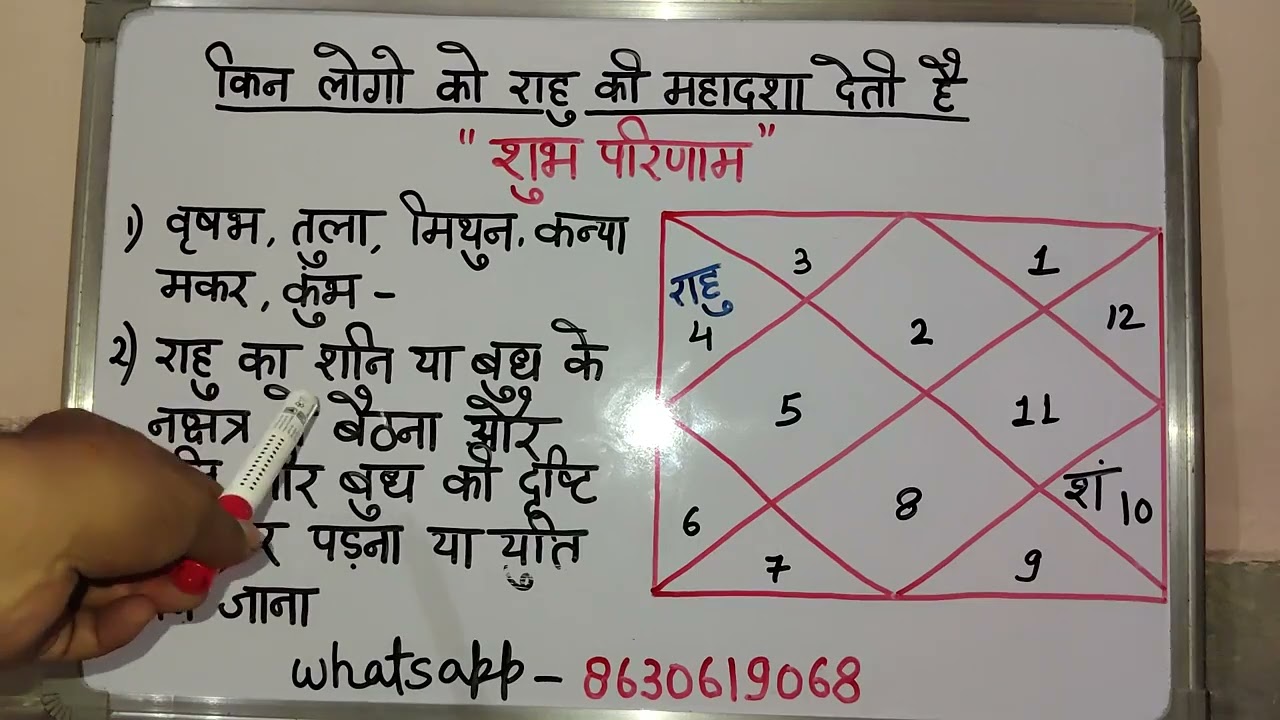 किन लोगो को राहु की महादशा देती है
"शुभ परिणाम"
1) वृषभ, तुला, मिथुन, कन्या
मकर, कुंभ -
2) राहु का शनि या बुध के
नक्षत्र बैठना और
बुध की दृष्टि
पड़ना या युति
जाना
राहु
3
1
12
4
2
5
11
शं
10
8
6
7
9
whatsapp - 8630619068